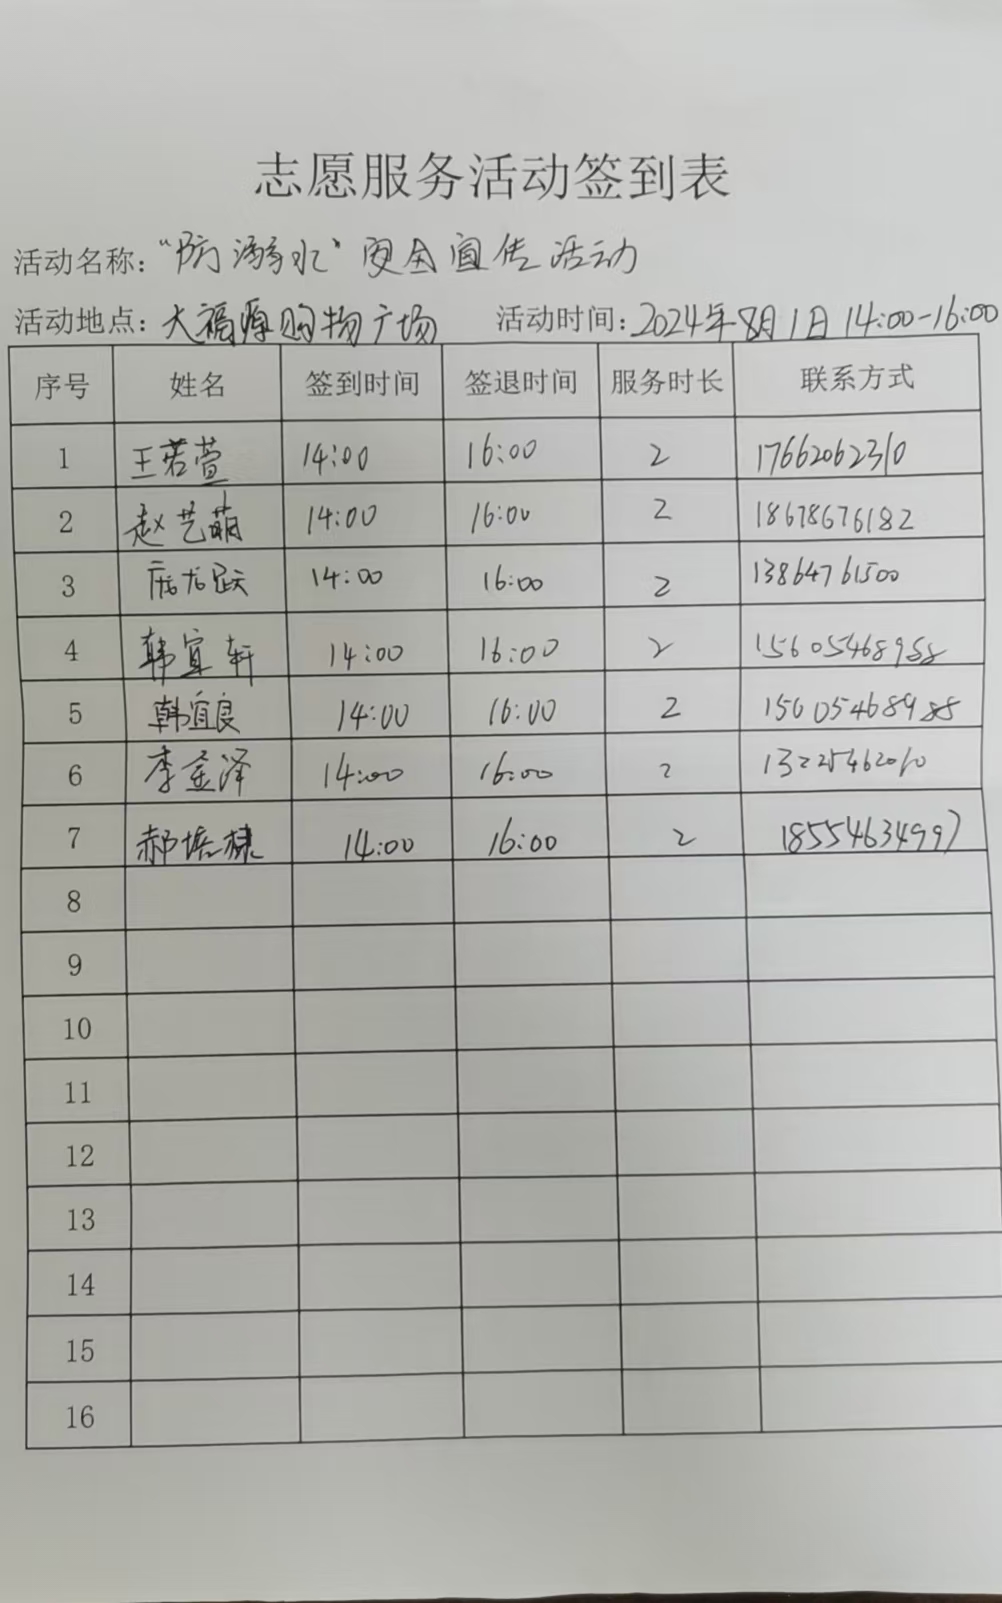 志愿服务活动签到表
活动名称：“防溺水”安全宣传活动
活动地点：大福源购物广场 活动时间：2024年8月1日14:00-16:00
序号 姓名 签到时间 签退时间 服务时长 联系方式
1 王若萱 14:00 16:00 2 17662062310
2 赵艺萌 14:00 16:00 2 18678676182
3 14:00 16:00 2 13864761500
4 韩宜轩 14:00 16:00 2 15605468988
5 韩宜良 14:00 16:00 2 15605468988
6 李金泽 14:00 16:00 2 13225462010
7 郝培棣 14:00 16:00 2 18554634997
8
9
10
11
12
13
14
15
16